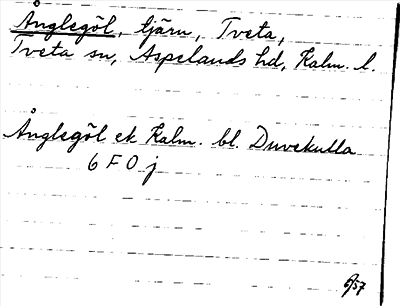 Ånglegöl, tjärn, Tveta,
Tveta sn, Aspelands hd, Kalm. l.
Ånglegöl ek Kalm. bl. Duvekulla
6 F 0 j
6/57